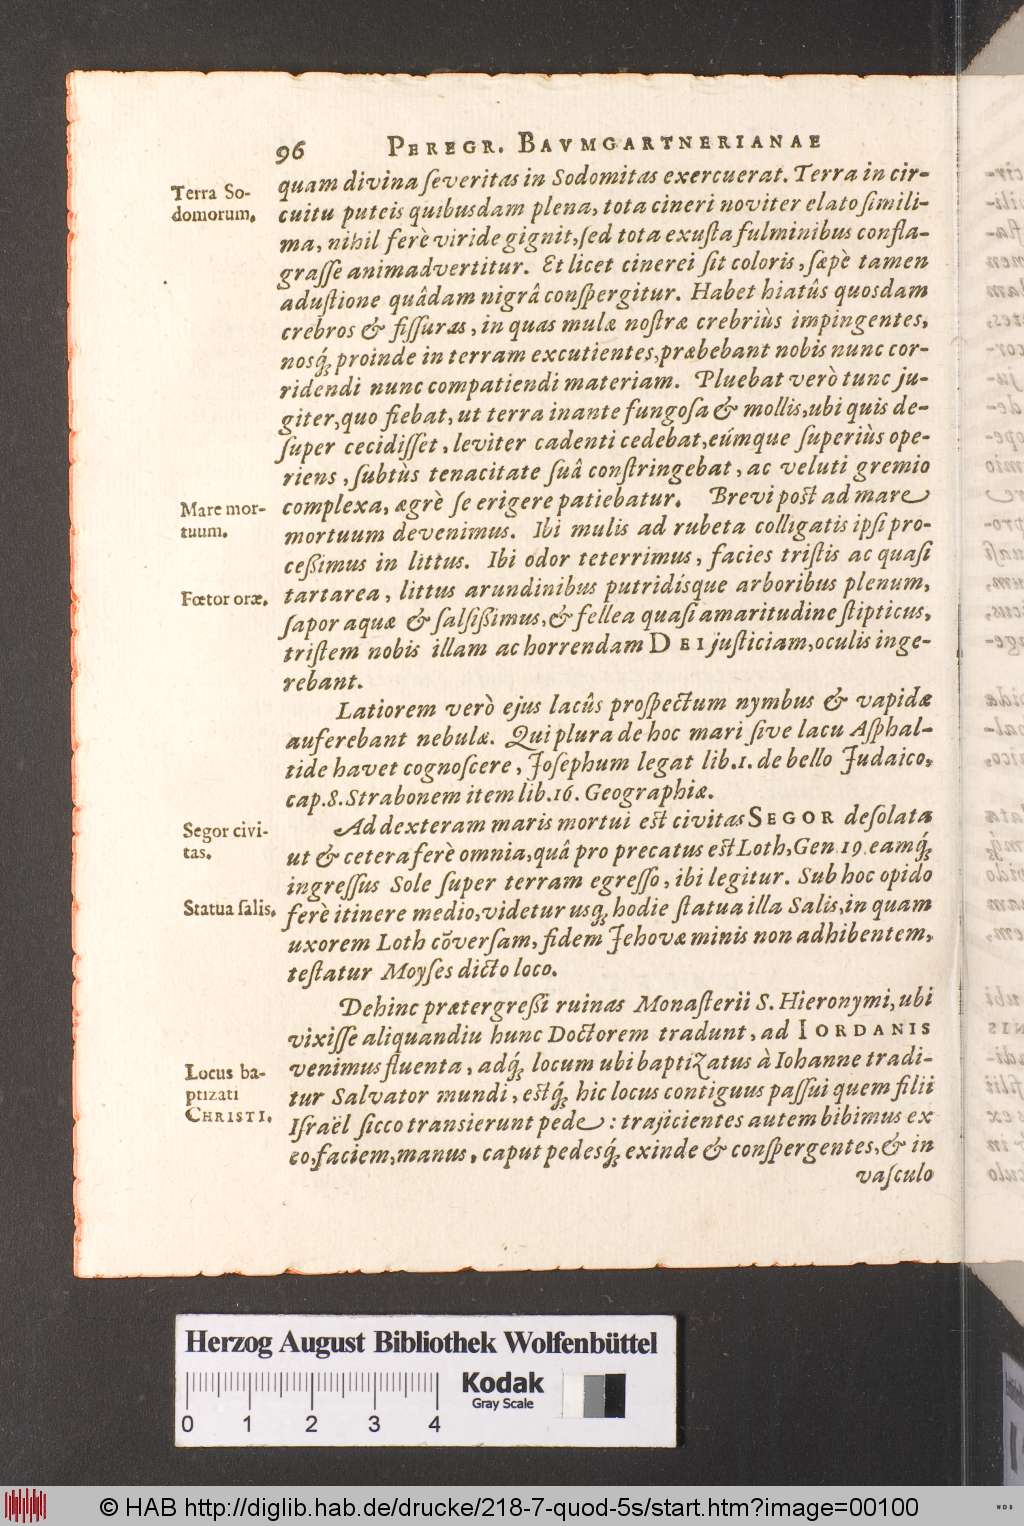 96 PEREGR. BAVMGARTNERIANAE
Terra So-
domorum.
quam divina ſeveritas in Sodomitas exercuerat. Terra in cir-
cuitu puteis quibusdam plena, tota cineri noviter elato ſimili-
ma, nihil ferè viride gignit, ſed tota exuſta fulminibus confla-
graſſe animadvertitur. Et licet cinerei ſit coloris, ſæpè tamen
aduſtione quâdam nigrâ conſpergitur. Habet hiatûs quosdam
crebros & fiſſuras, in quas mulæ noſtræ crebriùs impingentes,
nosq́; proinde in terram excutientes, præbebant nobis nunc cor-
ridendi nunc compatiendi materiam. Pluebat verò tunc ju-
giter, quo fiebat, ut terra inante fungoſa & mollis, ubi quis de-
ſuper cecidiſſet, leviter cadenti cedebat, eúmque ſuperiùs ope-
riens, ſubtùs tenacitate ſuâ conſtringebat, ac veluti gremio
Mare mor-
tuum.
complexa, ægrè ſe erigere patiebatur. Brevi poſt ad mare
mortuum devenimus. Ibi mulis ad rubeta colligatis ipſi pro-
ceßimus in littus. Ibi odor teterrimus, facies triſtis ac quaſi
Fœtor oræ.
tartarea, littus arundinibus putridísque arboribus plenum,
ſapor aquæ & ſalſißimus, & fellea quaſi amaritudine ſtipticus,
triſtem nobis illam ac horrendam DEI juſticiam, oculis inge-
rebant.
Latiorem verò ejus lacûs proſpectum nymbus & vapidæ
auferebant nebulæ. Qui plura de hoc mari ſive lacu Aſphal-
tide havet cognoſcere, Joſephum legat lib. 1. de bello Judaico,
cap. 8. Strabonem item lib. 16. Geographiæ.
Segor civi-
tas.
Ad dexteram maris mortui eſt civitas SEGOR deſolata
ut & cetera ferè omnia, quâ pro precatus eſt Loth, Gen 19. eamq́;
ingreſſus Sole ſuper terram egreſſo, ibi legitur. Sub hoc opido
Statua ſalis.
ferè itinere medio, videtur usq; hodie ſtatua illa Salis, in quam
uxorem Loth cõverſam, fidem Jehovæ minis non adhibentem,
teſtatur Moyſes dicto loco.
Dehinc prætergreßi ruinas Monaſterii S. Hieronymi, ubi
vixiſſe aliquandiu hunc Doctorem tradunt, ad IORDANIS
Locus ba-
ptizati
CHRISTI.
venimus fluenta, adq́; locum ubi baptizatus à Iohanne tradi-
tur Salvator mundi, eſtq́; hic locus contiguus paſſui quem filii
Iſraël ſicco transierunt pede: trajicientes autem bibimus ex
eo, faciem, manus, caput pedesq́; exinde & conſpergentes, & in
vaſculo
Herzog August Bibliothek Wolfenbüttel
Kodak
Gray Scale
0 1 2 3 4
© HAB http://diglib.hab.de/drucke/218-7-quod-5s/start.htm?image=00100